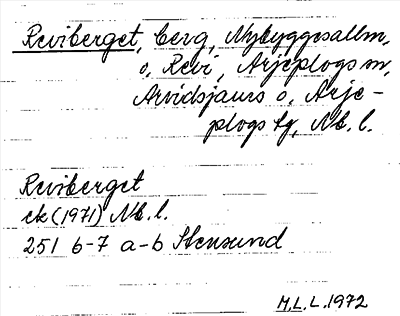 Reviberget, berg, Nybyggesallm.
o. Revi, Arjeplogs sn,
Arvidsjaurs o. Arje-
plogs tg, Nb. l.
Reviberget
ek (1971) Nb. l.
251 6-7 a-b Stensund
M.L.L. 1972